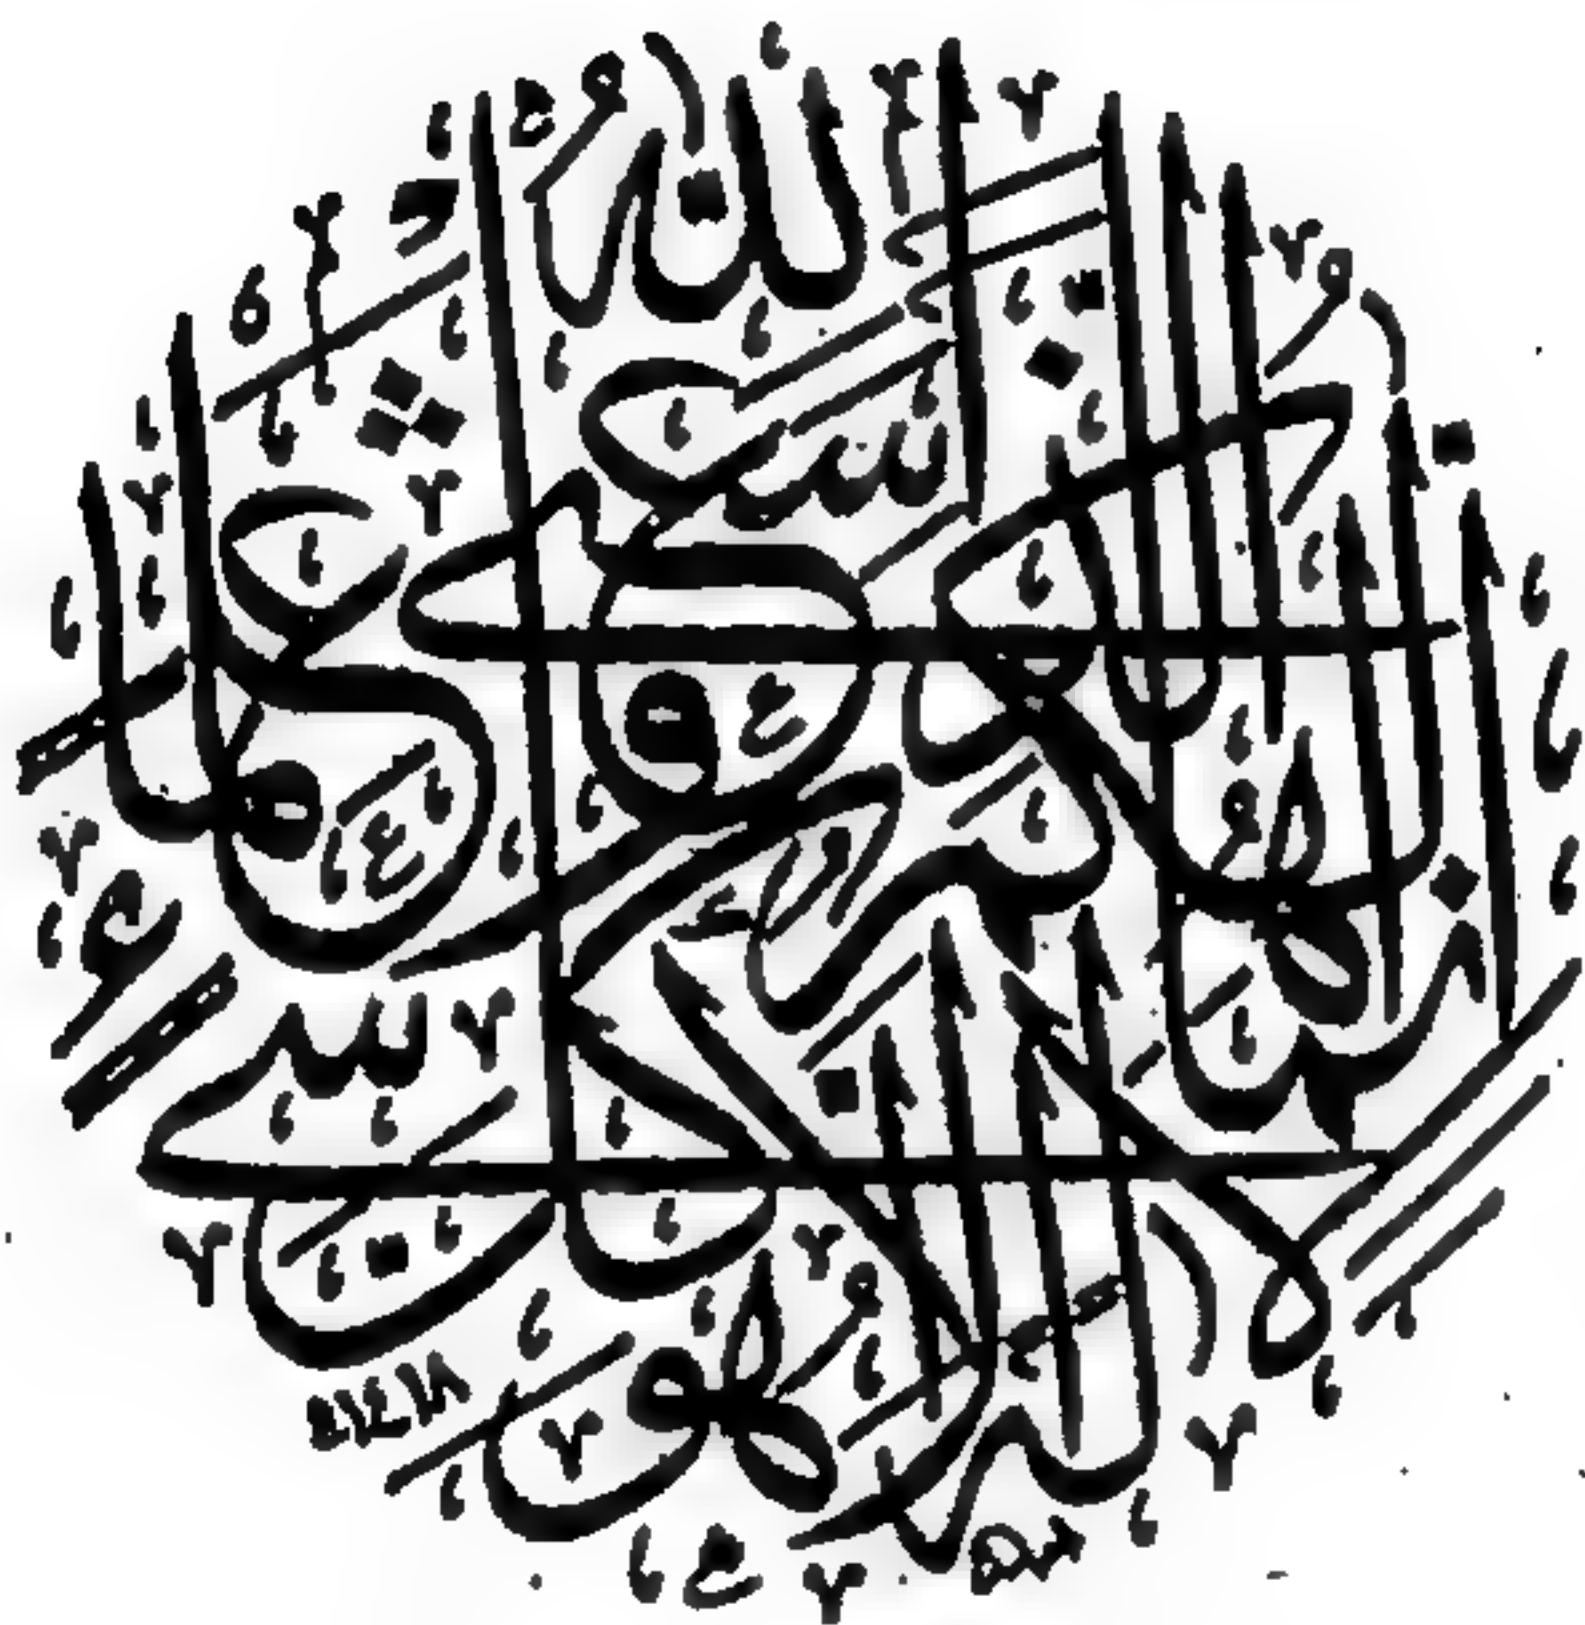 إِنَّمَا إِلَهُكُمُ اللَّهُ الَّذِي لَا إِلَهَ إِلَّا هُوَ وَسِعَ كُلَّ شَيْءٍ عِلْمًا